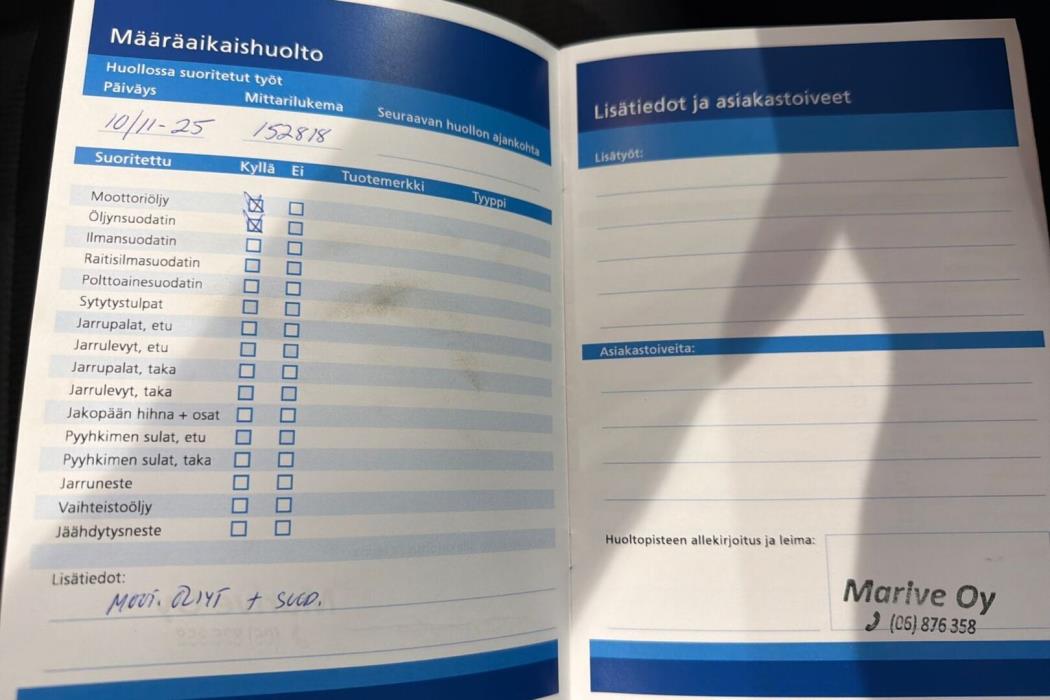 Määräaikaishuolto
Huollossa suoritetut työt
Päiväys Mittarilukema Seuraavan huollon ajankohta
10/11-25 152818
Suoritettu Kyllä Ei Tuotemerkki Tyyppi
Moottoriöljy
Öljynsuodatin
Ilmansuodatin
Raitisilmasuodatin
Polttoainesuodatin
Sytytystulpat
Jarrupalat, etu
Jarrulevyt, etu
Jarrupalat, taka
Jarrulevyt, taka
Jakopään hihna + osat
Pyyhkimen sulat, etu
Pyyhkimen sulat, taka
Jarruneste
Vaihteistoöljy
Jäähdytysneste
Lisätiedot:
MOOT. ÖLJYT + SUOD.
Lisätiedot ja asiakastoiveet
Lisätyöt:
Asiakastoiveita:
Huoltopisteen allekirjoitus ja leima:
Marive Oy
(06) 876 358